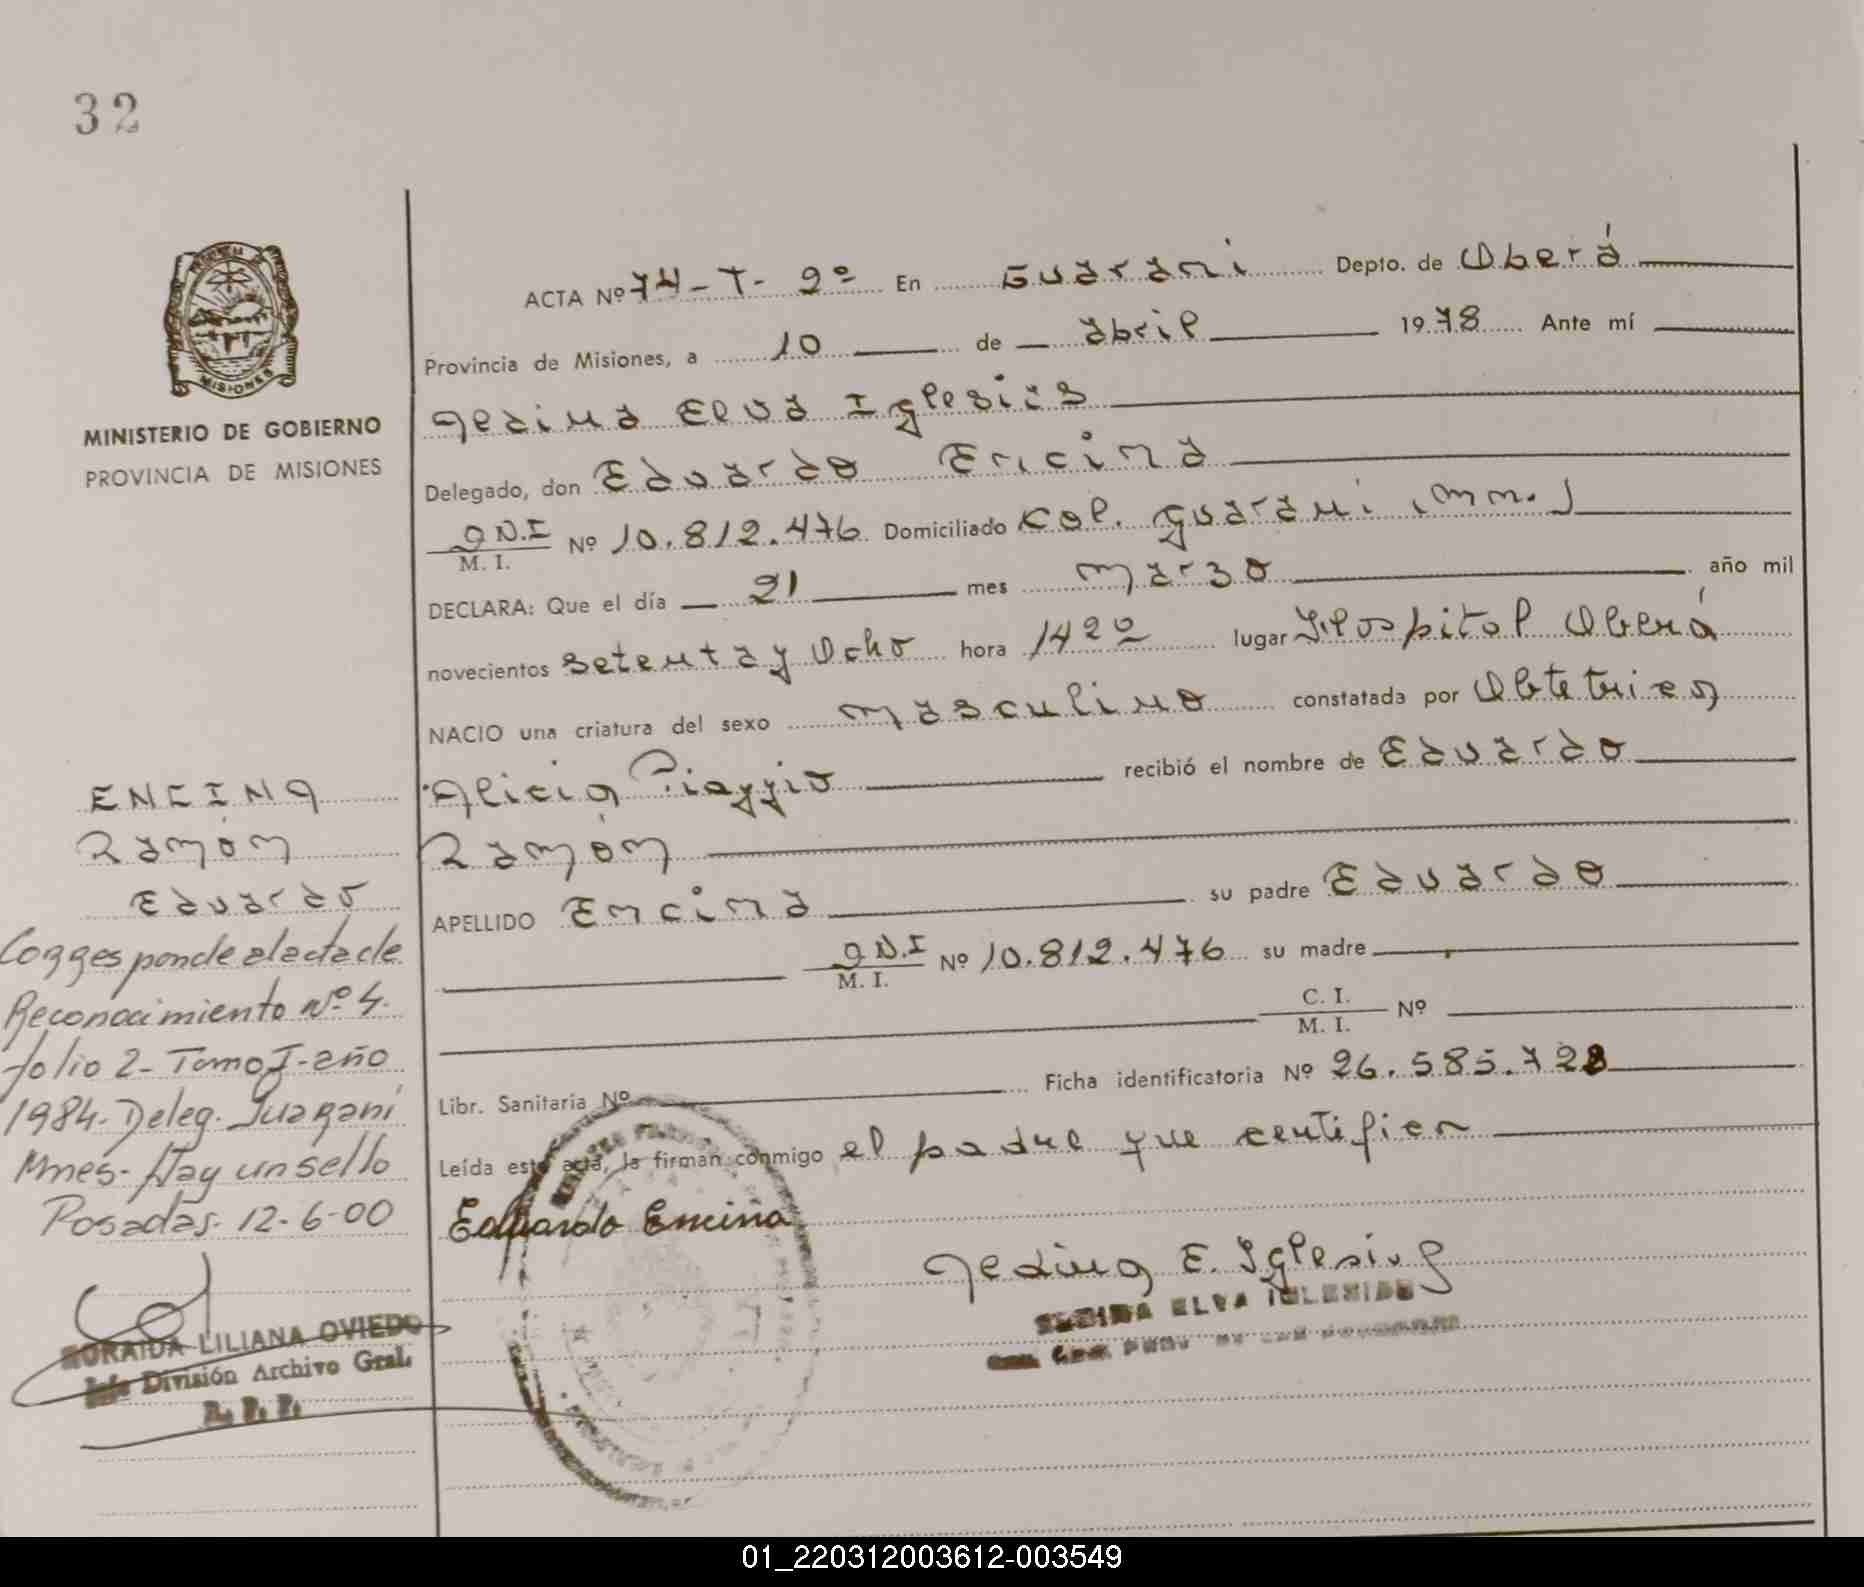 32
MINISTERIO DE GOBIERNO
PROVINCIA DE MISIONES
ACTA Nº 74-T-2º En Guarani Depto. de Oberá
Provincia de Misiones, a 10 de abril 1978 Ante mí
Elva Iglesias
Delegado, don Eduardo Encina
D.N.I M. I. Nº 10.812.476 Domiciliado Col. Guarani (Mn.)
DECLARA: Que el día 21 mes Marzo año mil
novecientos setenta y Ocho hora 14 20 lugar Hospital Oberá
NACIO una criatura del sexo masculino constatada por Obtetrica
Alicia Piaggio recibió el nombre de Eduardo
Ramón
APELLIDO Encina su padre Eduardo
D.N.I M. I. Nº 10.812.476 su madre
C. I. M. I. Nº
Libr. Sanitaria Nº Ficha identificatoria Nº 26.585.728
Leída esta acta, la firman conmigo el padre que certifica
Eduardo Encina
E. Iglesias
ELVA IGLESIAS
ENCINA
Ramón
Eduardo
Corresponde al acta de
Reconocimiento Nº 4.
folio 2- Tomo I- año
1984- Deleg. Guarani
Mnes- Hay un sello
Posadas- 12-6-00
ZORAIDA LILIANA OVIEDO
Jefe División Archivo Gral.
R. P. P.
MISIONES
01_220312003612-003549